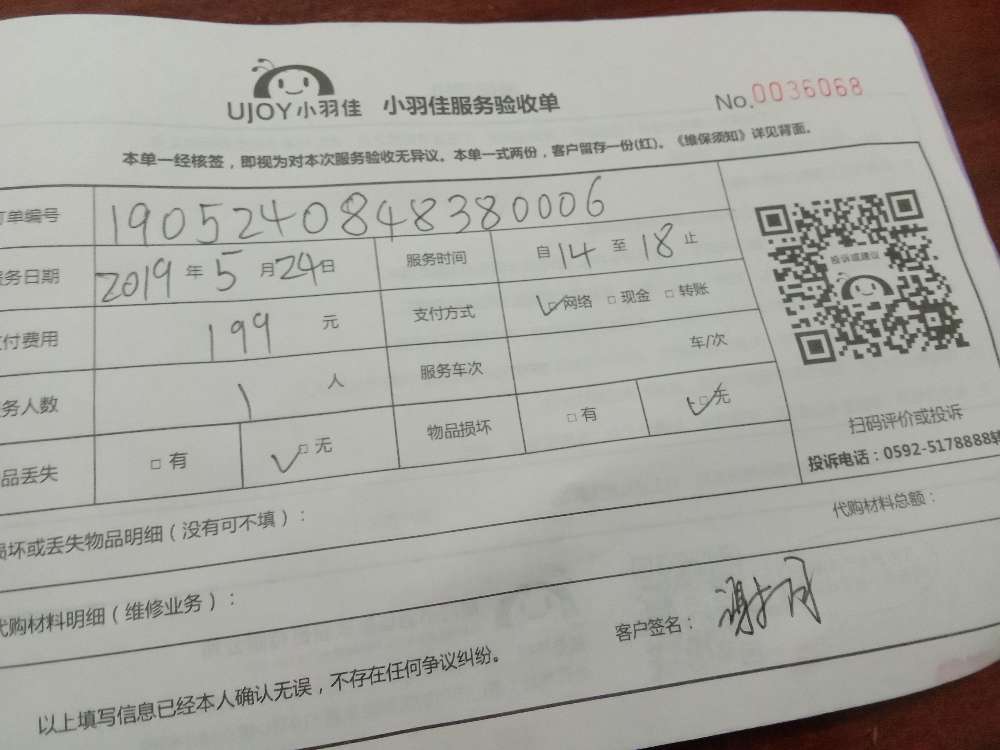 UJOY小羽佳 小羽佳服务验收单 No.0036068
本单一经核签，即视为对本次服务验收无异议。本单一式两份，客户留存一份(红)。《维保须知》详见背面。
订单编号 190524084838 0006
服务日期 2019年5月24日 服务时间 自14至18止
支付费用 199元 支付方式 □网络 □现金 □转账
服务人数 1人 服务车次 车/次
物品丢失 □有 □无 物品损坏 □有 □无
投诉或建议
扫码评价或投诉
投诉电话：0592-5178888转
损坏或丢失物品明细（没有可不填）：
代购材料总额：
代购材料明细（维修业务）：
客户签名：
以上填写信息已经本人确认无误，不存在任何争议纠纷。